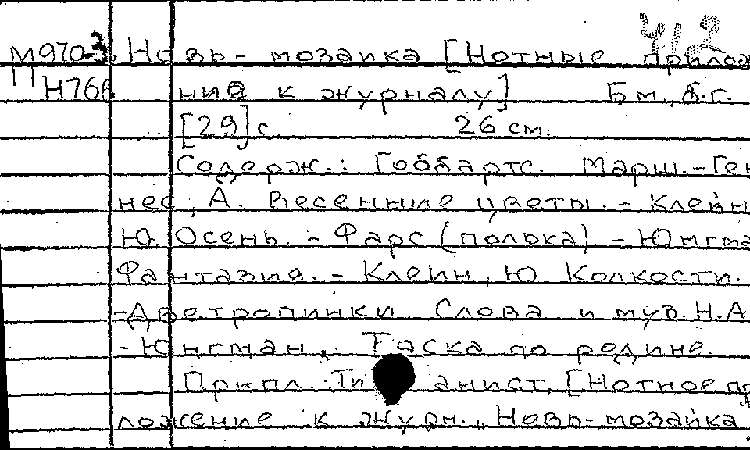 412
М970-3 Новь-мозаика [Нотные прилож
П Н766 ние к журналу] Б.м., б.г.
[29] с. 26 см.
Содерж.: Гоббартс. Марш.-Ген
нес, А. Весенние цветы.-Клейн
Ю. Осень.-Фарс (полька)-Юнгма
Фантазия.-Клейн, Ю Колкости.
-Две тропинки Слова и муз. Н.А
-Юнгман, Тоска по родине.
Припл.: анист, [Нотное пр
ложение к журн. „Новь-мозаика